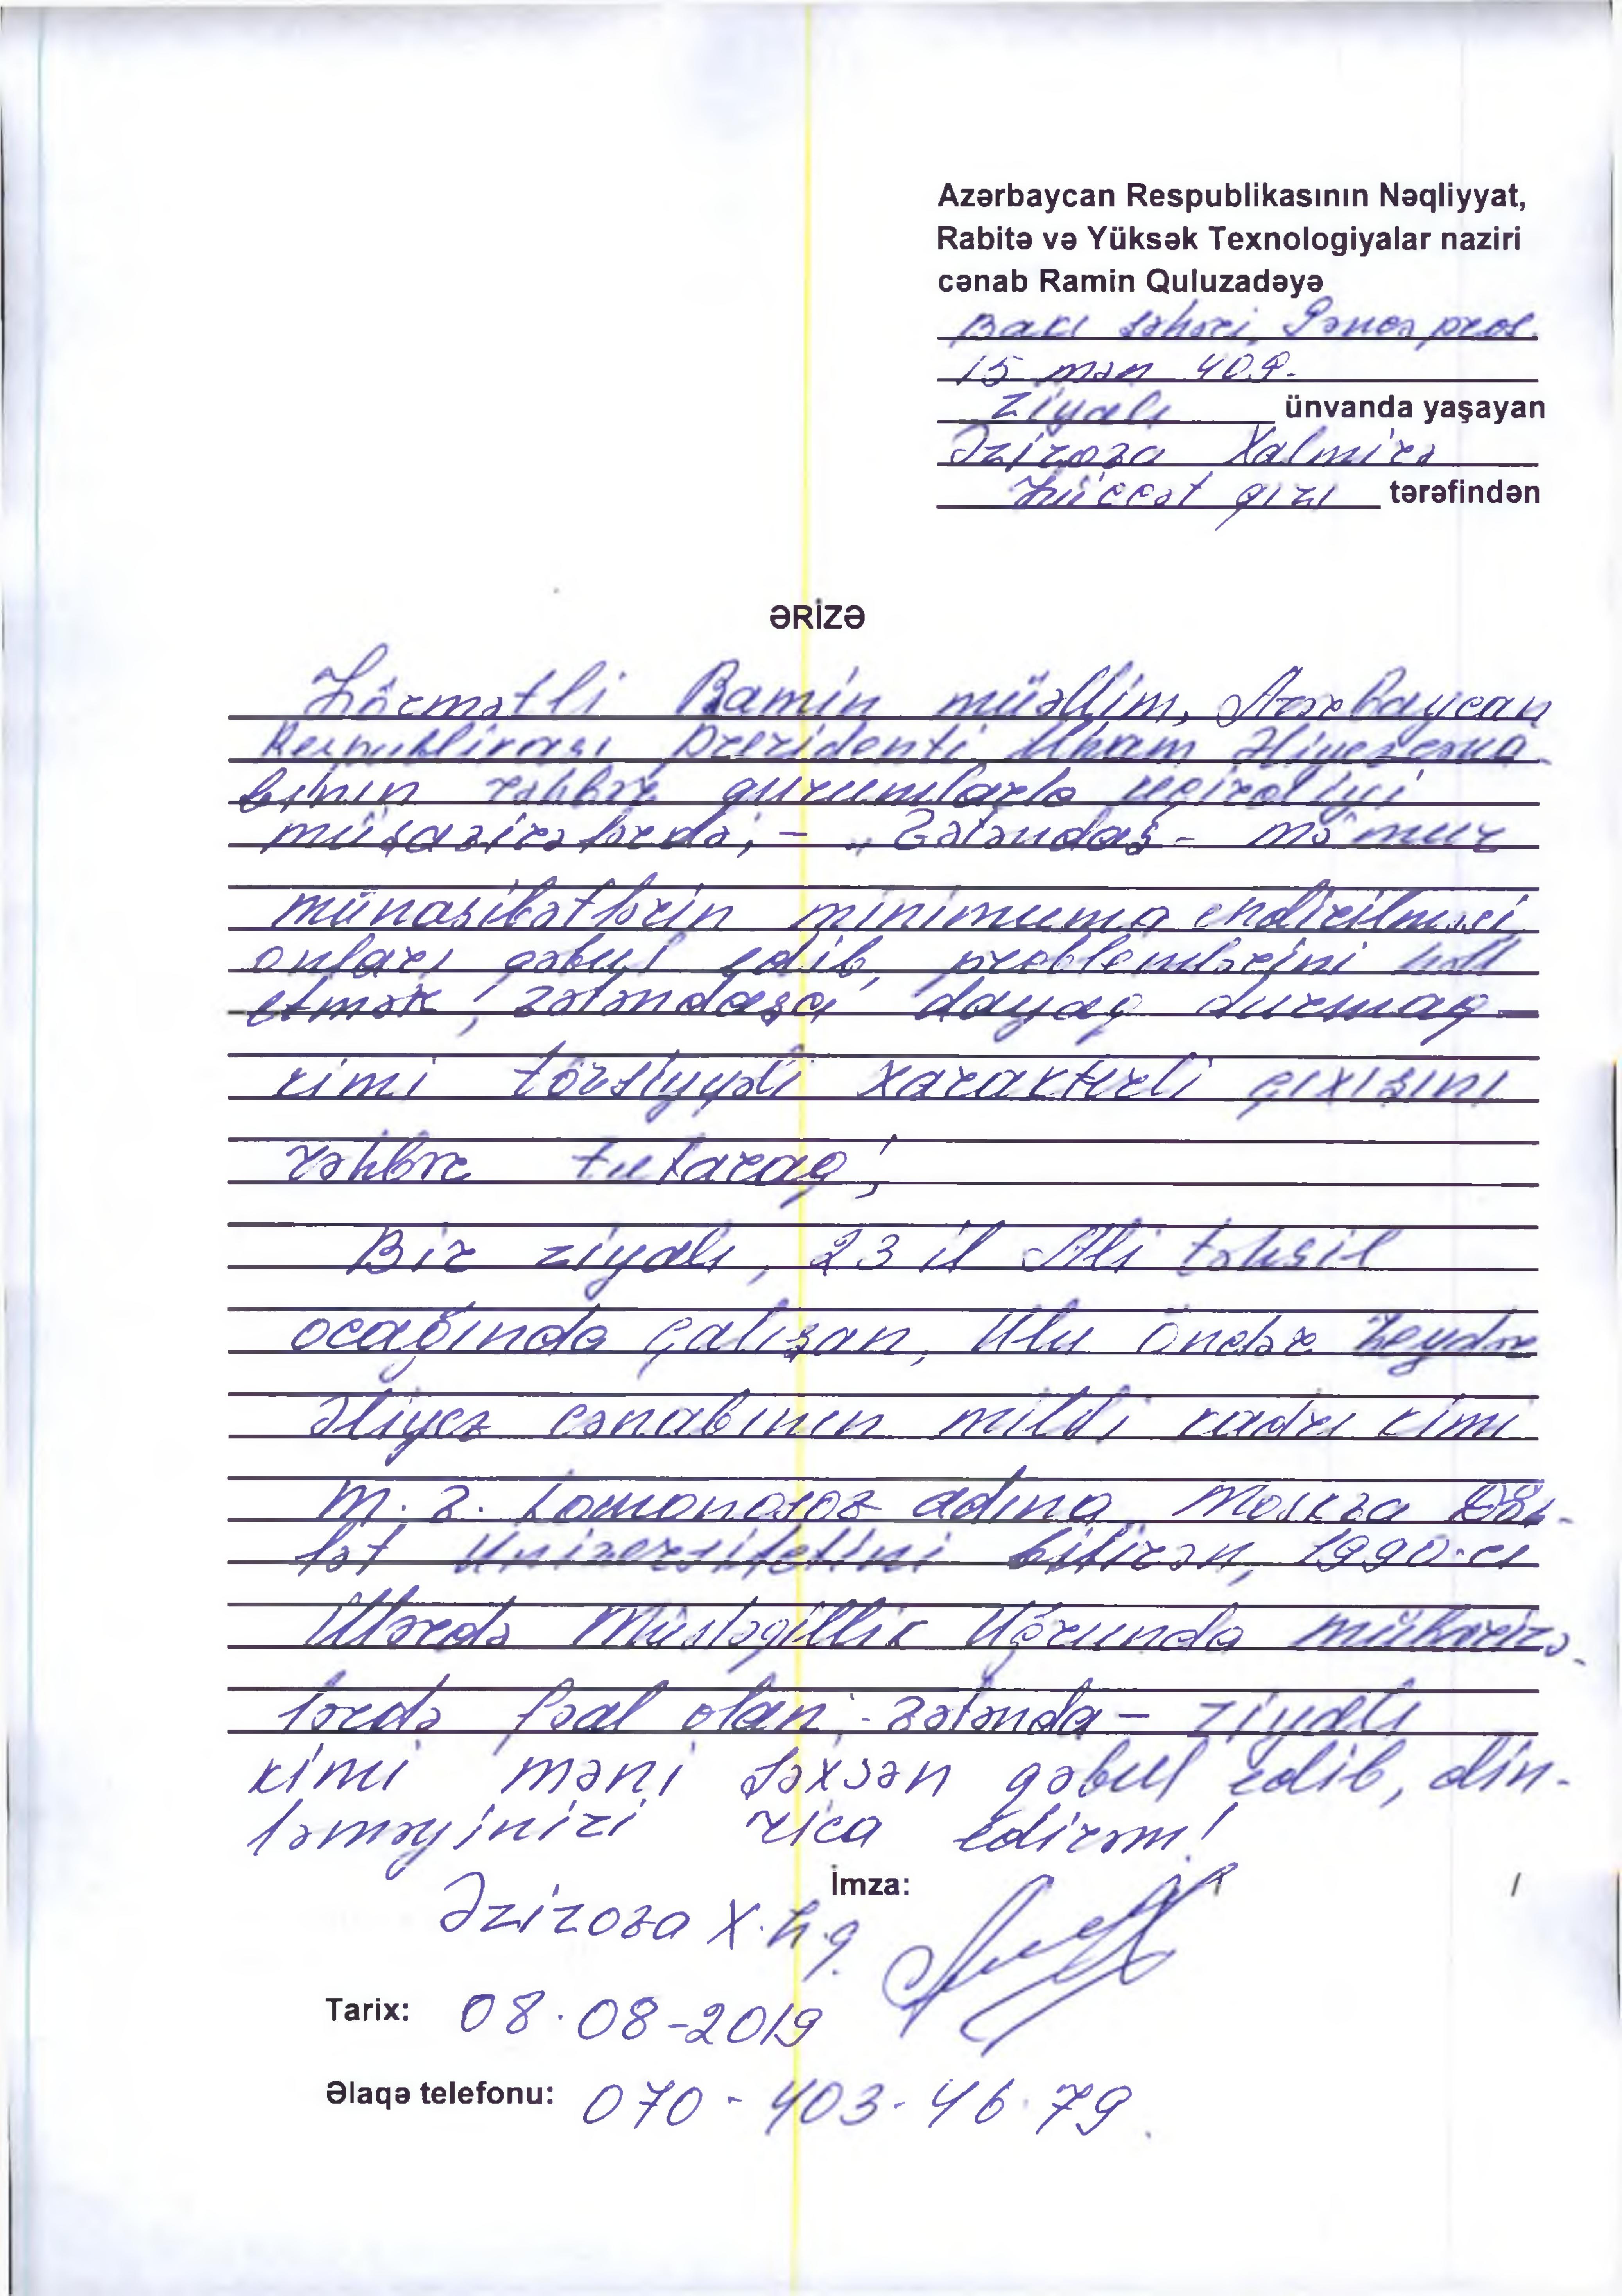 Azərbaycan Respublikasının Nəqliyyat,
Rabitə və Yüksək Texnologiyalar naziri
cənab Ramin Quluzadəyə
Bakı şəhəri, pros.
15 mən 409.
Ziyalı ünvanda yaşayan
Əzizova Xalmirə
Hüccət qızı tərəfindən
ƏRİZƏ
Hörmətli Ramin müəllim, Azərbaycan
Respublikası Prezidenti İlham Əliyev cəna-
bının rəhbər qurumlarla keçirdiyi
müşavirələrdə, – „Vətəndaş - mə'mur
münasibətlərin minimuma endirilməsi,
onları qəbul edib, problemlərini həll
etmək, vətəndaşa dayaq durmaq –
kimi tövsiyyəli xarakterli çıxışını
rəhbər tutaraq;
Bir ziyalı, 23 il Ali təhsil
ocağında çalışan, Ulu Öndər Heydər
Əliyev cənabının milli kadrı kimi
M. V. Lomonosov adına Moskva Döv-
lət Universitetini bitirən, 1990-cı
illərdə Müstəqillik Uğrunda mübarizə-
lərdə fəal olan, vətəndə – ziyalı
kimi məni şəxsən qəbul edib, din-
ləməyinizi rica edirəm!
İmza:
Əzizova X. H. q.
Tarix: 08.08-2019
Əlaqə telefonu: 070-403-46-79